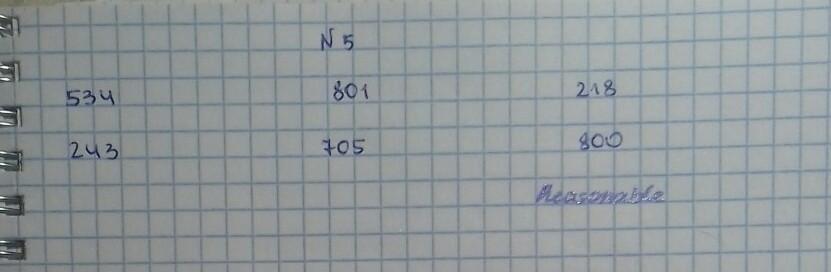 N 5
534 801 218
243 705 800
Reasonable